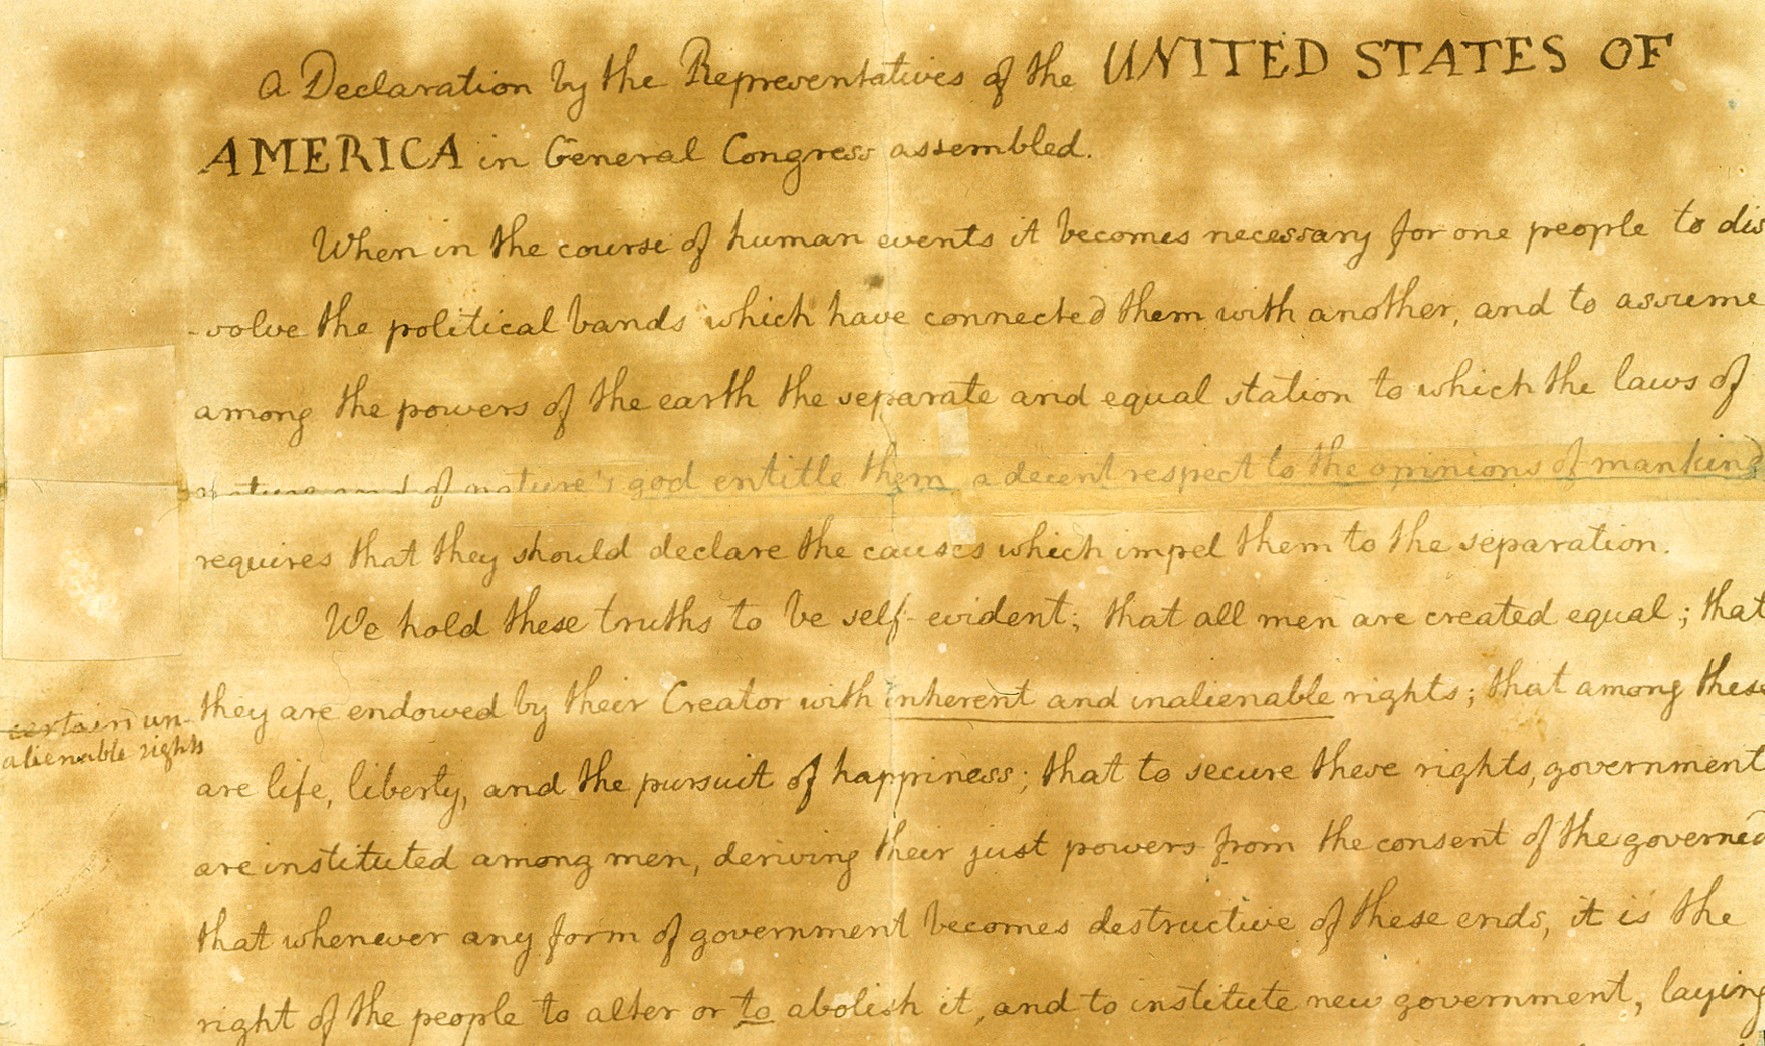 a Declaration by the Representatives of the UNITED STATES OF
AMERICA in General Congress assembled.
When in the course of human events it becomes necessary for one people to dis
-solve the political bands which have connected them with another, and to assume
among the powers of the earth the separate and equal station to which the laws of
nature and of nature's god entitle them, a decent respect to the opinions of mankind
requires that they should declare the causes which impel them to the separation.
We hold these truths to be self-evident; that all men are created equal; that
they are endowed by their Creator with inherent and inalienable rights; that among these
certain un-
alienable rights
are life, liberty, and the pursuit of happiness; that to secure these rights, government
are instituted among men, deriving their just powers from the consent of the governed
that whenever any form of government becomes destructive of these ends, it is the
right of the people to alter or to abolish it, and to institute new government, laying